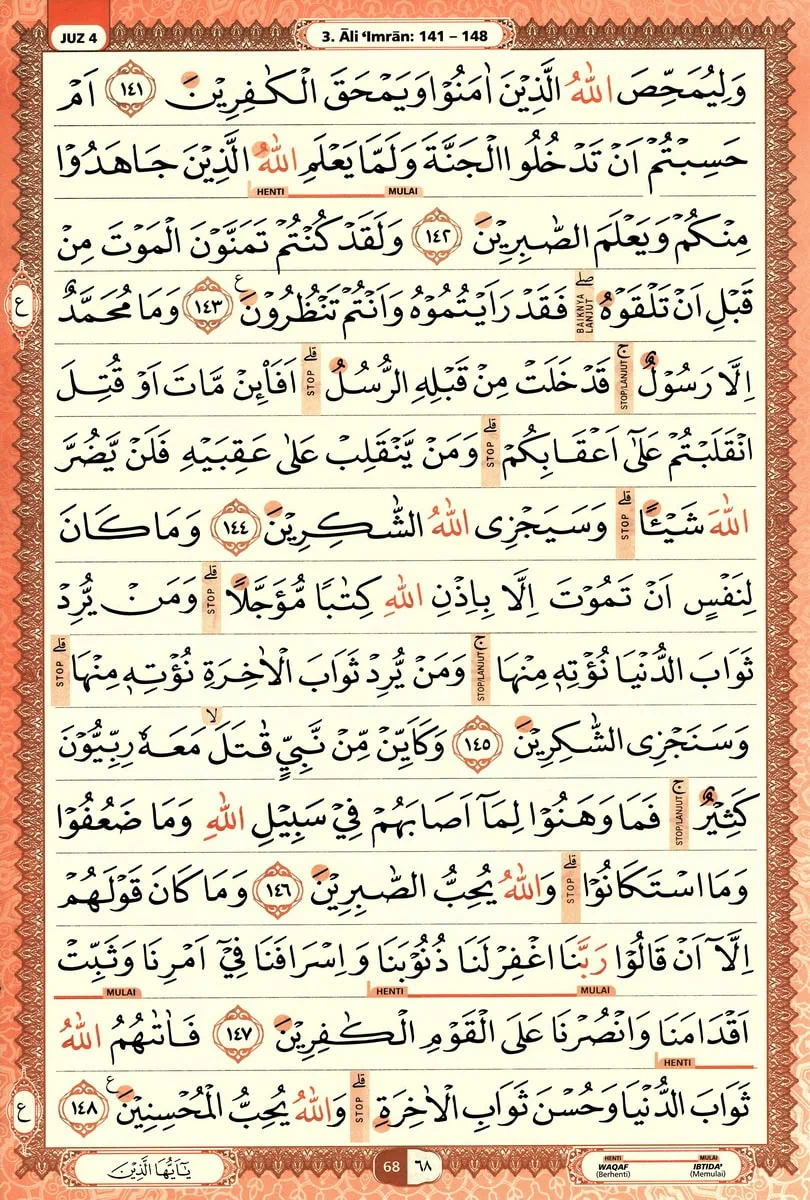 JUZ 4
3. Āli ‘Imrān: 141 – 148
وَلِيُمَحِّصَ اللّٰهُ الَّذِيْنَ اٰمَنُوْا وَيَمْحَقَ الْكٰفِرِيْنَ ١٤١ اَمْ
حَسِبْتُمْ اَنْ تَدْخُلُوا الْجَنَّةَ وَلَمَّا يَعْلَمِ اللّٰهُ الَّذِيْنَ جَاهَدُوْا
HENTI MULAI
مِنْكُمْ وَيَعْلَمَ الصّٰبِرِيْنَ ١٤٢ وَلَقَدْ كُنْتُمْ تَمَنَّوْنَ الْمَوْتَ مِنْ
قَبْلِ اَنْ تَلْقَوْهُ ۖ BAIKNYA LANJUT فَقَدْ رَاَيْتُمُوْهُ وَاَنْتُمْ تَنْظُرُوْنَ ع ١٤٣ وَمَا مُحَمَّدٌ
ع
اِلَّا رَسُوْلٌ ۚ STOP/LANJUT قَدْ خَلَتْ مِنْ قَبْلِهِ الرُّسُلُ ۗ STOP اَفَا۟ىِٕنْ مَّاتَ اَوْ قُتِلَ
انْقَلَبْتُمْ عَلٰٓى اَعْقَابِكُمْ ۗ STOP وَمَنْ يَّنْقَلِبْ عَلٰى عَقِبَيْهِ فَلَنْ يَّضُرَّ
اللّٰهَ شَيْـًٔا ۗ STOP وَسَيَجْزِى اللّٰهُ الشّٰكِرِيْنَ ١٤٤ وَمَا كَانَ
لِنَفْسٍ اَنْ تَمُوْتَ اِلَّا بِاِذْنِ اللّٰهِ كِتٰبًا مُّؤَجَّلًا ۗ STOP وَمَنْ يُّرِدْ
ثَوَابَ الدُّنْيَا نُؤْتِهٖ مِنْهَا ۚ STOP/LANJUT وَمَنْ يُّرِدْ ثَوَابَ الْاٰخِرَةِ نُؤْتِهٖ مِنْهَا ۗ STOP
وَسَنَجْزِى الشّٰكِرِيْنَ ١٤٥ وَكَاَيِّنْ مِّنْ نَّبِيٍّ قٰتَلَ ۙ مَعَهٗ رِبِّيُّوْنَ
كَثِيْرٌ ۚ STOP/LANJUT فَمَا وَهَنُوْا لِمَآ اَصَابَهُمْ فِيْ سَبِيْلِ اللّٰهِ وَمَا ضَعُفُوْا
وَمَا اسْتَكَانُوْا ۗ STOP وَاللّٰهُ يُحِبُّ الصّٰبِرِيْنَ ١٤٦ وَمَا كَانَ قَوْلَهُمْ
اِلَّآ اَنْ قَالُوْا رَبَّنَا اغْفِرْ لَنَا ذُنُوْبَنَا وَاِسْرَافَنَا فِيْٓ اَمْرِنَا وَثَبِّتْ
MULAI HENTI MULAI
اَقْدَامَنَا وَانْصُرْنَا عَلَى الْقَوْمِ الْكٰفِرِيْنَ ١٤٧ فَاٰتٰىهُمُ اللّٰهُ
HENTI
ثَوَابَ الدُّنْيَا وَحُسْنَ ثَوَابِ الْاٰخِرَةِ ۗ STOP وَاللّٰهُ يُحِبُّ الْمُحْسِنِيْنَ ع ١٤٨
ع
يٰٓاَيُّهَا الَّذِيْنَ
68 ٦٨
HENTI MULAI
WAQAF IBTIDA’
(Berhenti) (Memulai)